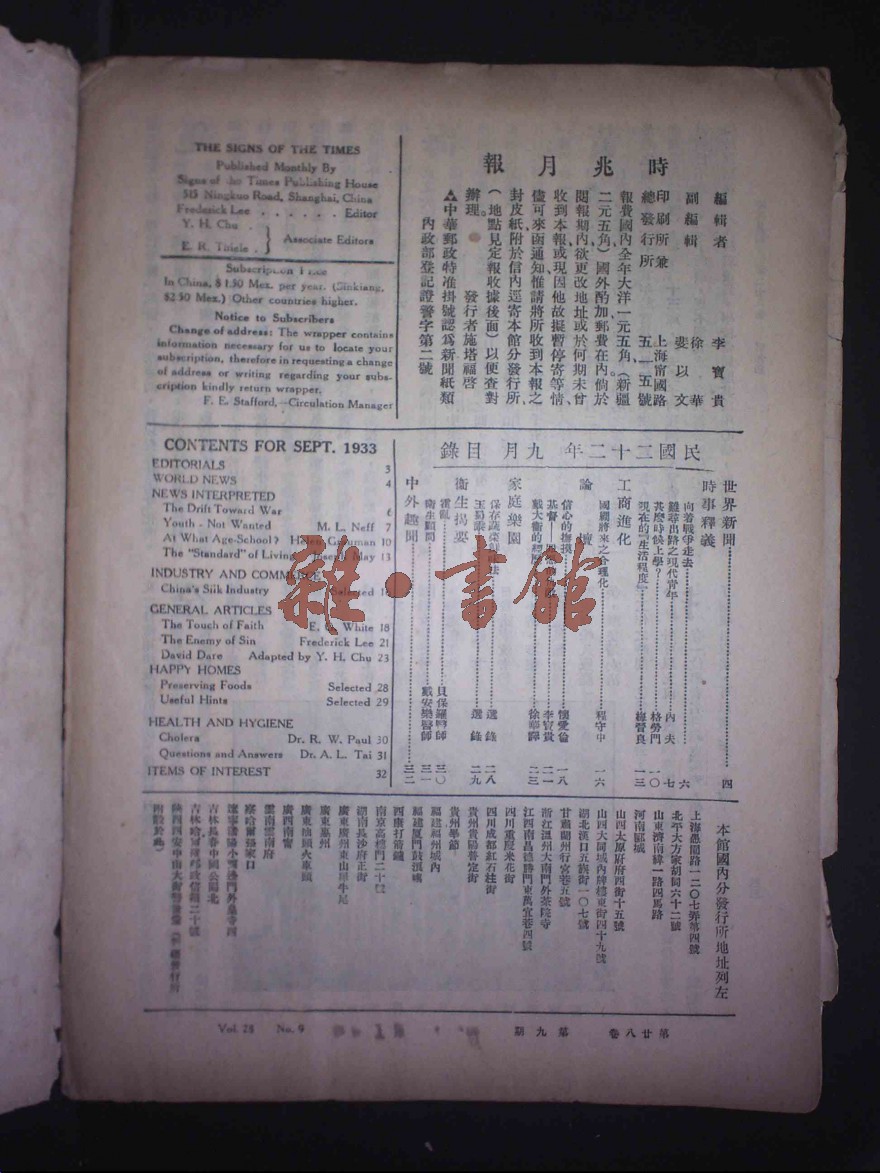 THE SIGNS OF THE TIMES
Published Monthly By
Signs of the Times Publishing House
515 Ningkuo Road, Shanghai, China
Frederick Lee . . . . . . Editor
Y. H. Chu .
E. R. Thiele . } Associate Editors
Subscription Price
In China, $1.50 Mex. per year. (Sinkiang,
$2.50 Mex.) Other countries higher.
Notice to Subscribers
Change of address: The wrapper contains
information necessary for us to locate your
subscription, therefore in requesting a change
of address or writing regarding your subs-
cription kindly return wrapper.
F. E. Stafford, —Circulation Manager
時兆月報
編輯者 李寶貴
副編輯 徐華
斐以文
印刷所兼
總發行所 上海甯國路
五一五號
報費國內全年大洋一元五角、(新疆
二元五角)國外酌加、郵費在內倘於
閱報期內、欲更改地址或於何期未曾
收到本報、或現因他故擬暫停寄等情、
儘可來函通知、惟請將所收到本報之
封皮紙、附於信內逕寄本館分發行所、
(地點見定報收據後面)以便查對
辦理。 發行者施塔福啓
▲中華郵政特准掛號認爲新聞紙類
內政部登記證警字第二號
CONTENTS FOR SEPT. 1933
EDITORIALS 3
WORLD NEWS 4
NEWS INTERPRETED
The Drift Toward War 6
Youth - Not Wanted M. L. Neff 7
At What Age-School? Helen 10
The "Standard" of Living Joseph May 13
INDUSTRY AND COMMERCE
China's Silk Industry Selected
GENERAL ARTICLES
The Touch of Faith E. G. White 18
The Enemy of Sin Frederick Lee 21
David Dare Adapted by Y. H. Chu 23
HAPPY HOMES
Preserving Foods Selected 28
Useful Hints Selected 29
HEALTH AND HYGIENE
Cholera Dr. R. W. Paul 30
Questions and Answers Dr. A. L. Tai 31
ITEMS OF INTEREST 32
民國二十二年九月目錄
世界新聞 四
時事釋義
向着戰爭走去 六
難尋出路之現代青年 內夫 七
甚麼時候上學? 格勞門 一〇
現在的『生活程度』 梅晉良 一三
工商進化
國繭將來之合理化 程守中 一六
論壇
信心的撫摸 懷愛倫 一八
基督 李寶貴 二一
戴大衛的 徐華譯 二三
家庭樂園
保存蔬菜 選錄 二八
選錄 二九
衛生揭要
霍亂 貝保羅醫師 三〇
衛生顧問 戴安樂醫師 三一
中外趣聞 三二
雜·書館
本館國內分發行所地址列左
上海愚園路一二〇七弄第四號
北平大方家胡同六十二號
山東濟南緯一路四馬路
河南郾城
山西太原府府西街十五號
山西大同城內牌樓東街四十九號
湖北漢口五族街一〇七號
甘肅蘭州行宮巷五號
浙江溫州大南門外茶院寺
江西南昌德勝門東萬宜巷四號
四川重慶米花街
四川成都紅石柱街
貴州貴陽普定街
貴州畢節
福建福州城內
福建厦門鼓浪嶼
西康打箭鑪
南京高樓門二十號
湖南長沙府正街
廣東廣州東山犀牛尾
廣東惠州
廣東汕頭火車頭
廣西南甯
雲南雲南府
察哈爾張家口
吉林長春中國公園北
第廿八卷 第九期
Vol. 28 No. 9